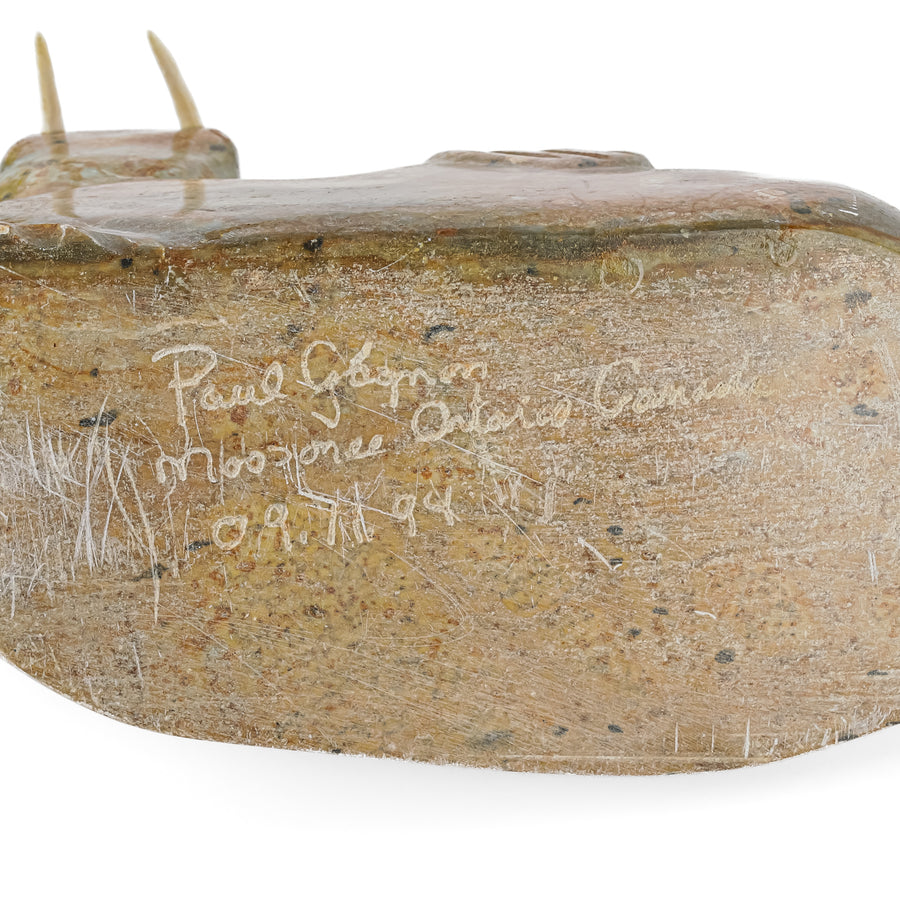 Paul Gagnon
Moosonee Ontario Canada
09.11 94